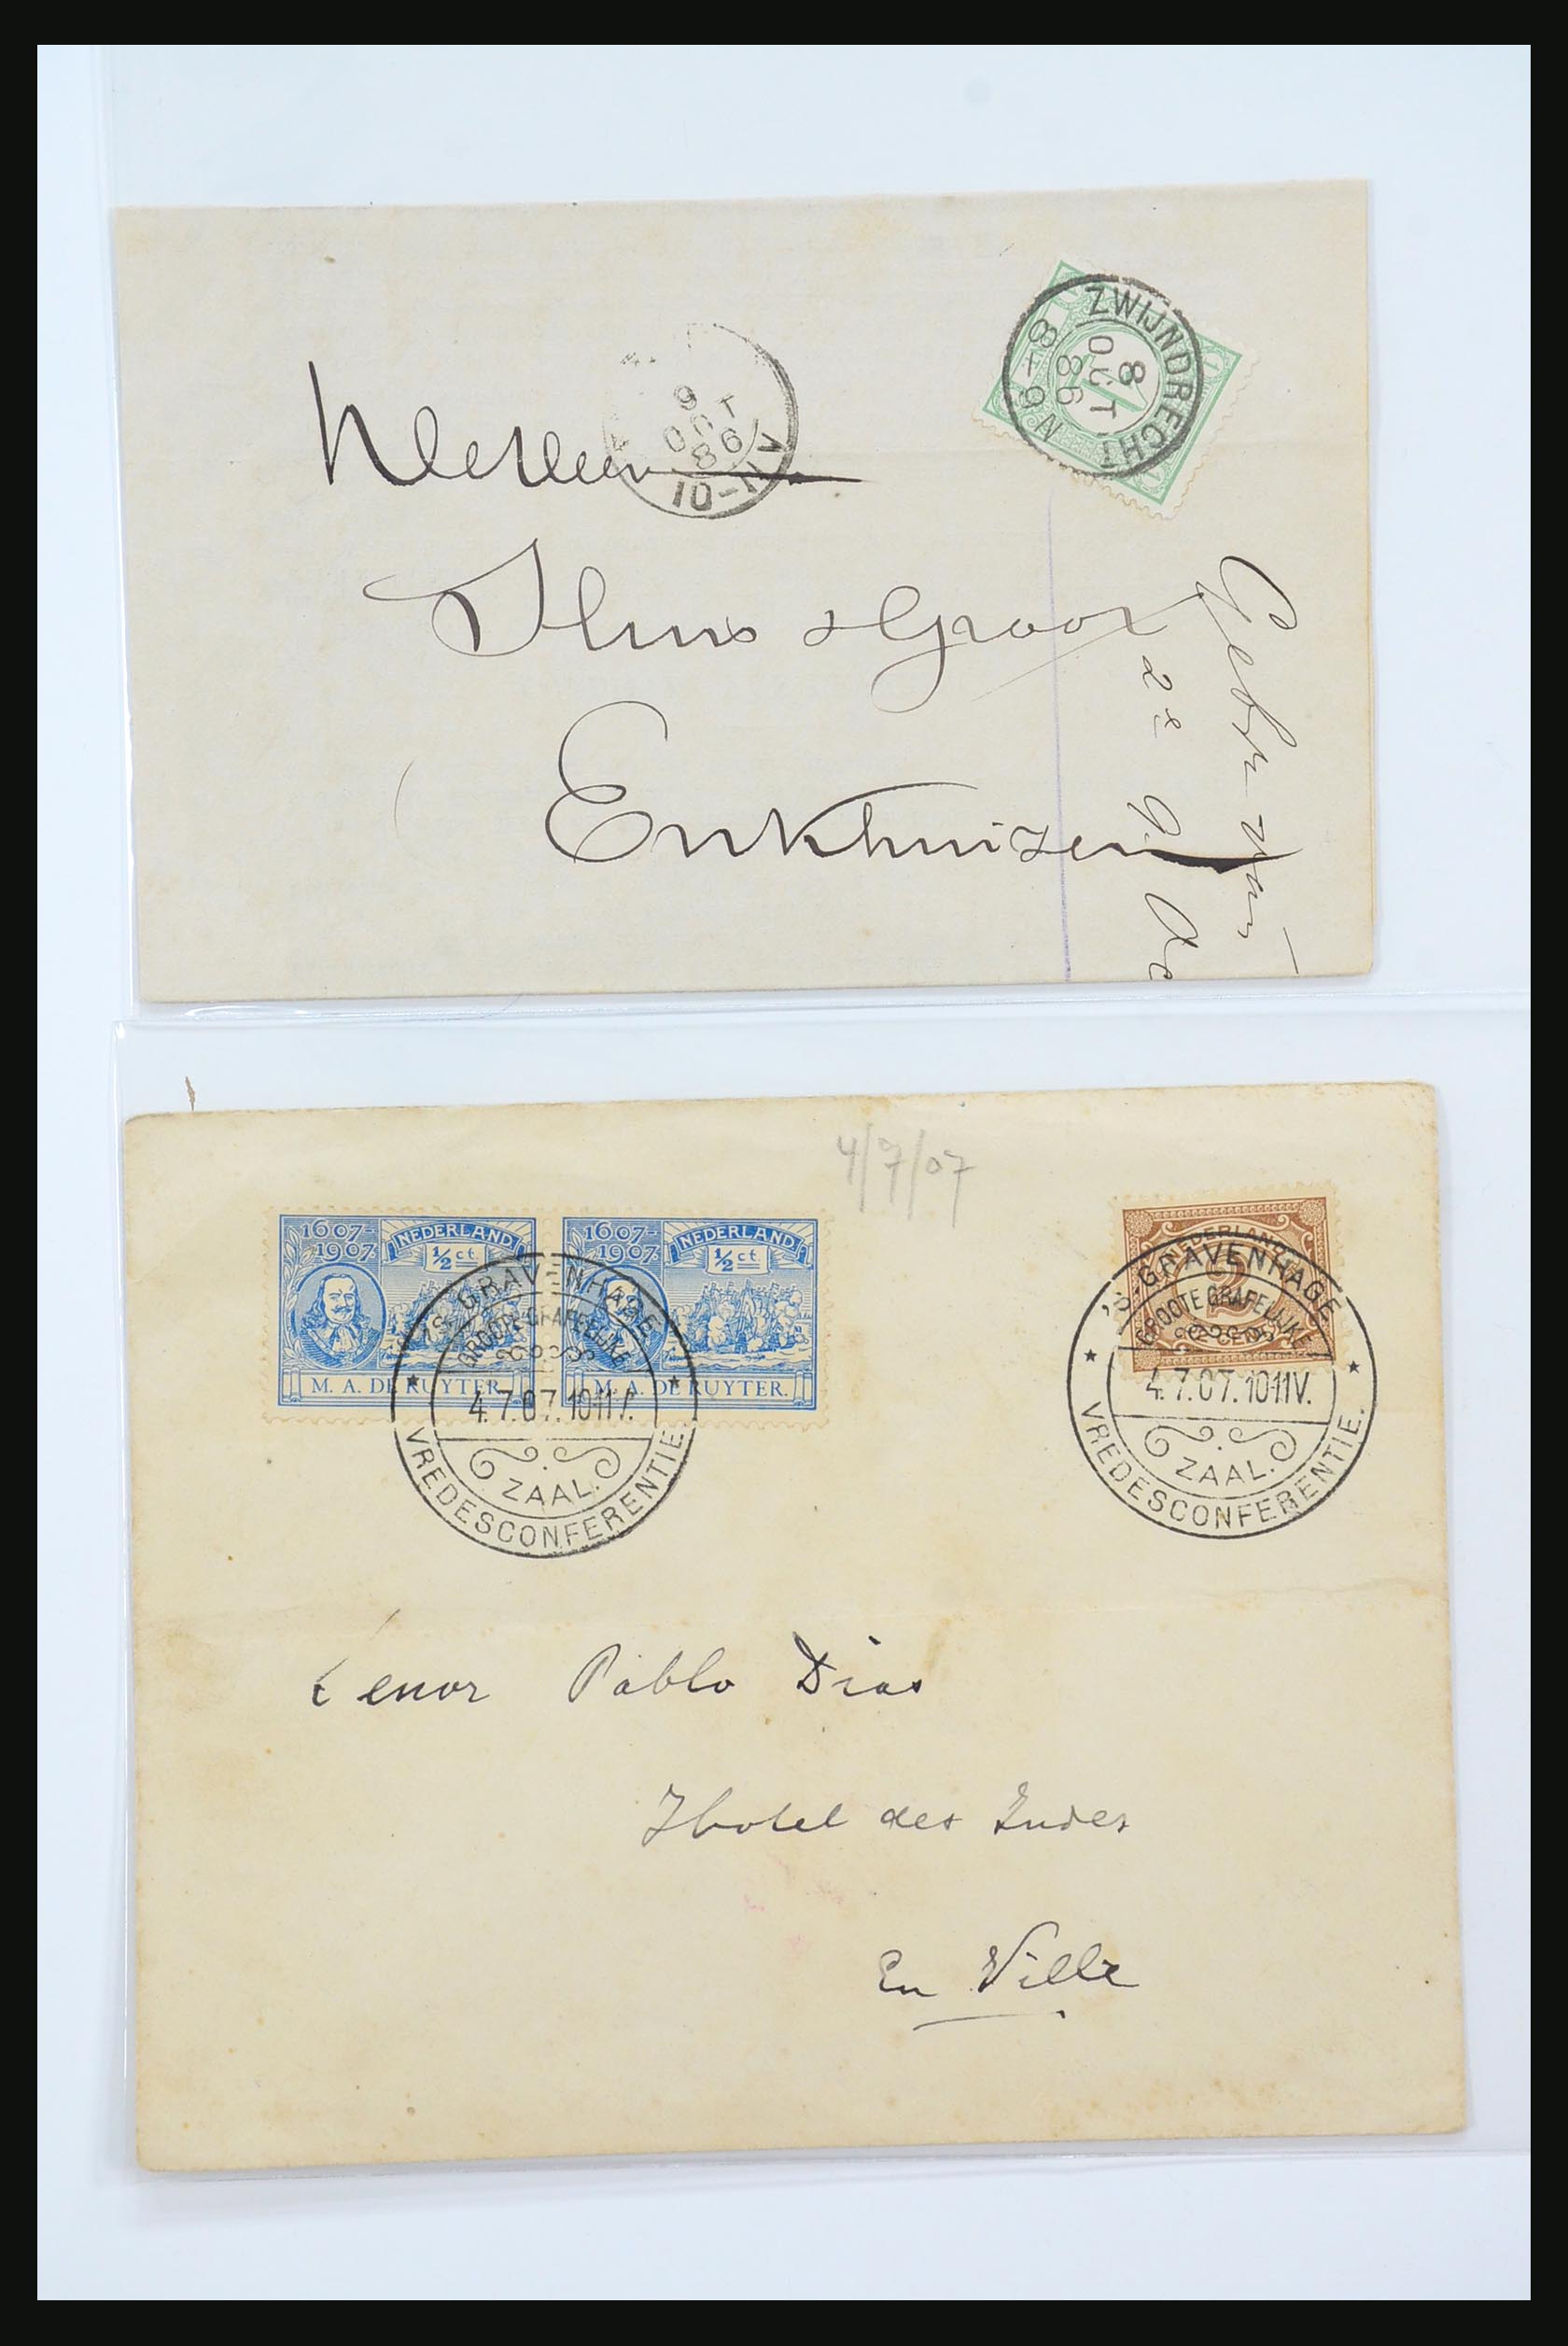 ZWIJNDRECHT
8
OCT
86
8-9N
9
OCT
86
10-11V
Enkhuizen
4/7/07
1607-
1907.
NEDERLAND
½ ct.
M. A. DE RUYTER.
1607-
1907.
NEDERLAND
½ ct.
M. A. DE RUYTER.
'S GRAVENHAGE
GROOTE GRAFELIJKE
4.7.07.10-11V.
ZAAL.
VREDESCONFERENTIE.
NEDERLAND
2
'S GRAVENHAGE
GROOTE GRAFELIJKE
4.7.07.10-11V.
ZAAL.
VREDESCONFERENTIE.
Senor Pablo Dias
Hotel des Indes
En Ville